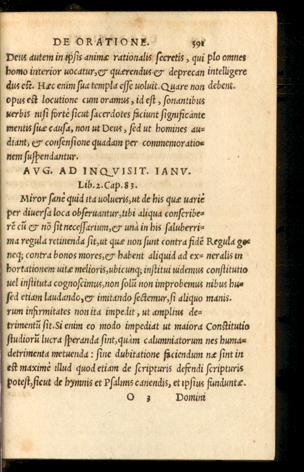 DE ORATIONE. 591
Deus autem in ipsis animæ rationalis secretis, qui plo omnes
homo interior uocatur, & quærendus & deprecan intelligere
dus est. Hæc enim sua templa esse uoluit. Quare non debent.
opus est locutione cum oramus, id est, sonantibus
uerbis nisi fortè sicut sacerdotes faciunt significandæ
mentis suæ causa, non ut Deus, sed ut homines au-
diant, & consensione quadam per commemoratio-
nem suspendantur.
AVG. AD INQVISIT. IANV.
Lib. 2. Cap. 83.
Miror sanè quid ita uolueris, ut de his quæ uariè
per diuersa loca obseruantur, tibi aliqua conscribe-
rē cū & nō sit necessarium, & una in his saluberri-
ma regula retinenda sit, ut quæ non sunt contra fidē Regula ge-
neq; contra bonos mores, & habent aliquid ad ex- neralis in
hortationem uitæ melioris, ubicunq; institui uidemus constitutio
uel instituta cognoscimus, non solū non improbemus nibus hu-
sed etiam laudando, & imitando sectemur, si aliquo manis.
rum infirmitates non ita impedit, ut amplius de-
trimentū sit. Si enim eo modo impediat ut maiora Constitutio
studiorū lucra speranda sint, quàm calumniatorum nes humanæ
detrimenta metuenda: sine dubitatione faciendum sint in
est maximè illud quod etiam de scripturis defendi scripturis
potest, sicut de hymnis et Psalmis canendis, et ipsius fundatæ.
O 3 Domini